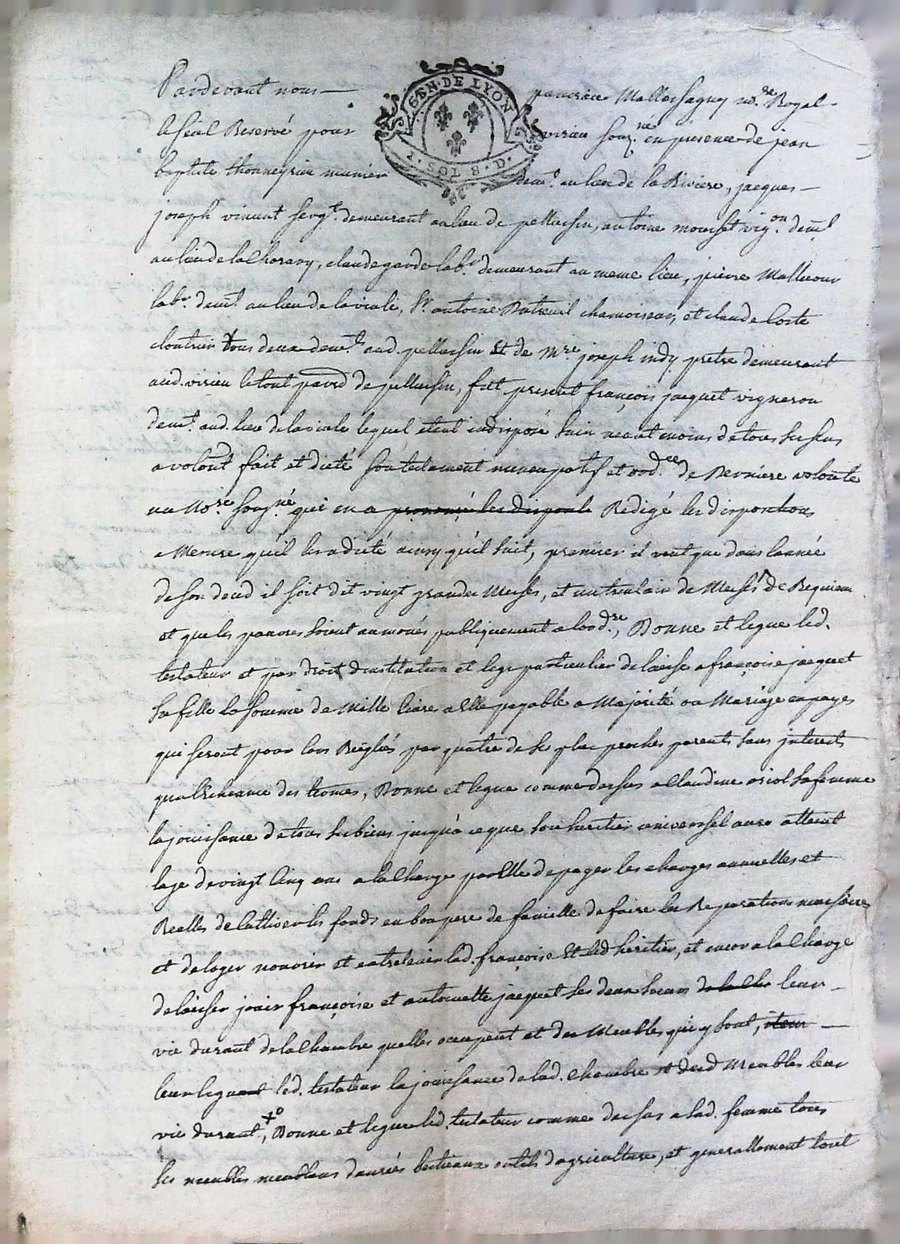 GEN. DE LYON
2. SOLS 8. D.
Pardevant nous — Mallassagny no.re Royal
le seul Reservé pour virieu souz.né en presence de jean
baptiste thonneyrieu munier dem.t au lieu de la Riviere, jacques
joseph vincent serg.r demeurant au lieu de pellussin, antoine mourset vig.on dem.t
au lieu de la Charary, claude garde lab.r demeurant au meme lieu, pierre Malleour
lab.r dem.t au lieu de la viale, S.r antoine Bateuil chamoiseur, et claude Coste
cloutrier tous deux dem.ts aud. pellussin Et de M.re joseph indy pretre demeurant
aud. virieu le tout par.sse de pellussin, fut present françois jacquet vigneron
dem.t aud. lieu de la viale lequel etant indisposé sain neant moins de tous ses sens
a volont. fait et dicté son testament nuncupatif et ord.ce de Derniere volonte
au No.re souz.né qui en a prononcé les disposit Redigé les dispositions
a Mesure qu'il les a dicté ainsy qu'il suit, premier il veut que dans lannée
de son deced il soit dit vingt grandes Messes, et un trentain de Messes de Requiem
et que les pauvres soient aumonés publiquement a l'ord.re, Donne et legue led.
testateur et par droit d'institution et legs particulier delaisse a françoise jacquet
sa fille la somme de Mille livre a Elle payable a Majorité ou Mariage en payes
qui seront pour lors Reiglés par quatre de se plus proches parents sans interets
qu'a l'echeance des termes, Donne et legue comme dessus a Claudine oriol sa femme
la jouissance de tous ses biens jusqu'a ce que son heritier universel aura atteint
lage de vingt Cinq ans a la Charge par Elle de payer les charges annuelles et
Reelles de Cultiver les fonds en bon pere de famille de faire les Reparations necessaires
et de loger nourrir et entretenir lad. françoise Et led. heritier, et encor a la Charge
de laisser jouir françoise et antoinette jacquet ses deux soeurs de la Cha leur
vie durant de la Chambre quelles occupent et des Meubles qui y sont, leur
leur leguant led. testateur la jouissance de lad. Chambre et desd. Meubles leur
vie durant, Donne et legue led. testateur comme dessus a lad. femme tous
ses meubles meublans danrées bestiaux outils d'agriculture, et generallement tout